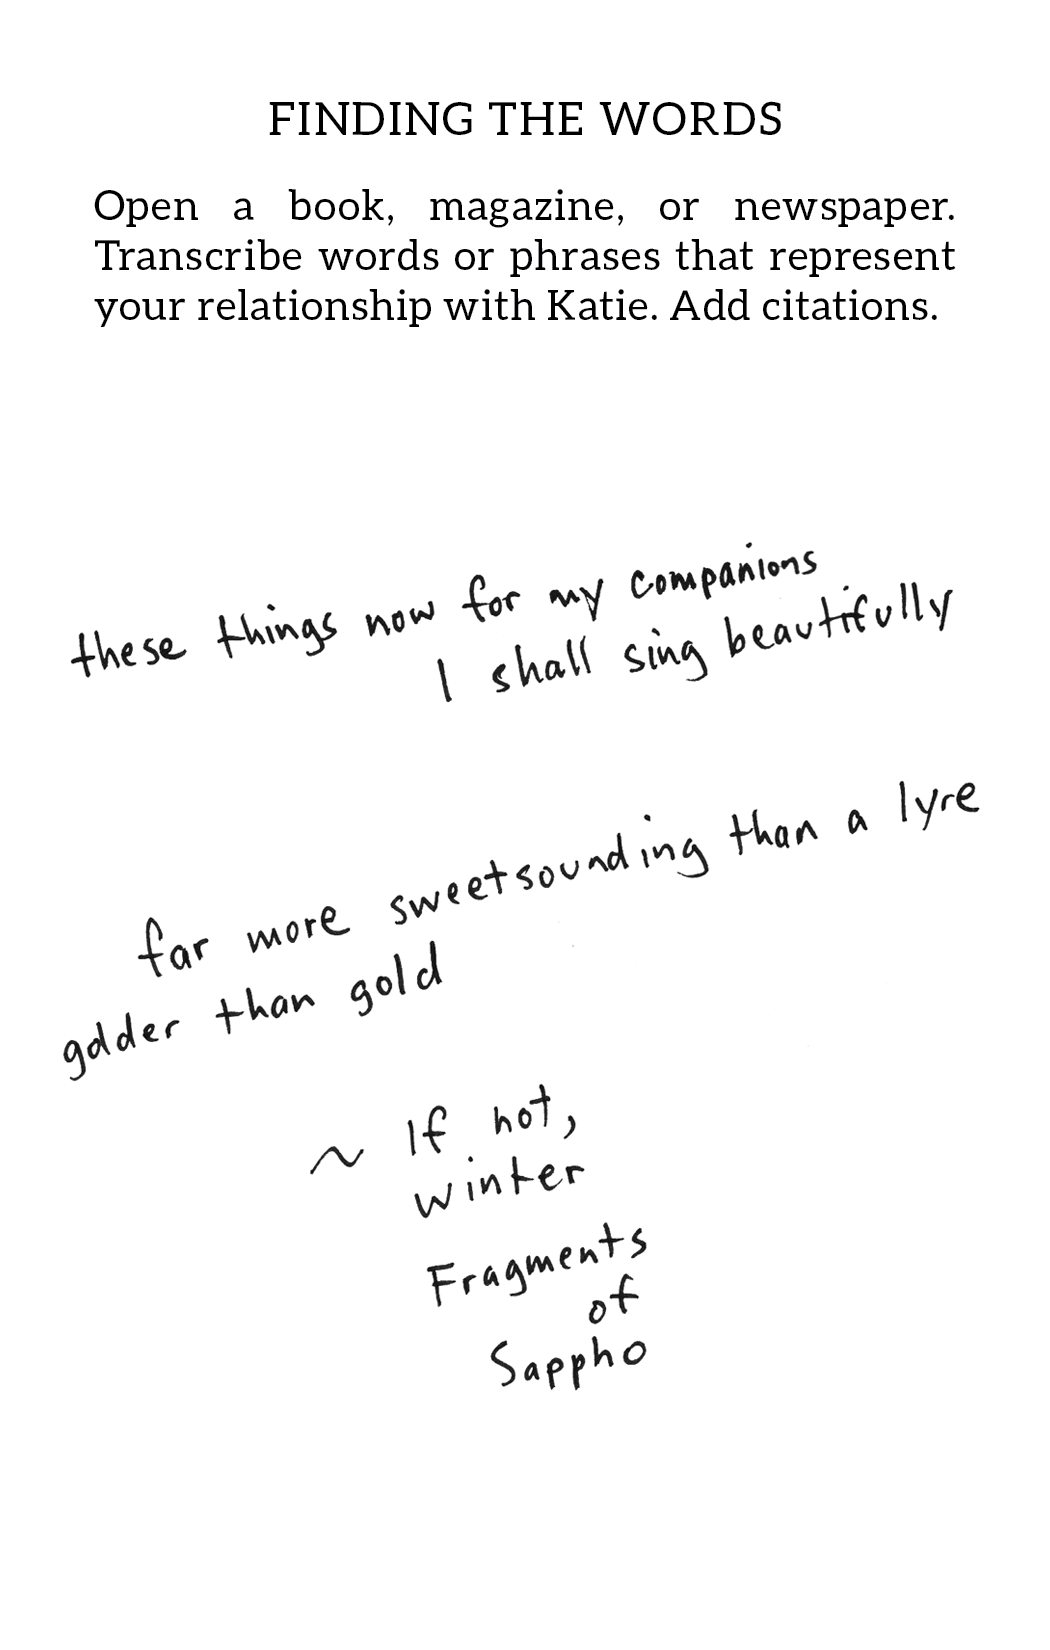 FINDING THE WORDS
Open a book, magazine, or newspaper.
Transcribe words or phrases that represent
your relationship with Katie. Add citations.
these things now for my companions
I shall sing beautifully
far more sweetsounding than a lyre
golder than gold
~ If not,
winter
Fragments
of
Sappho